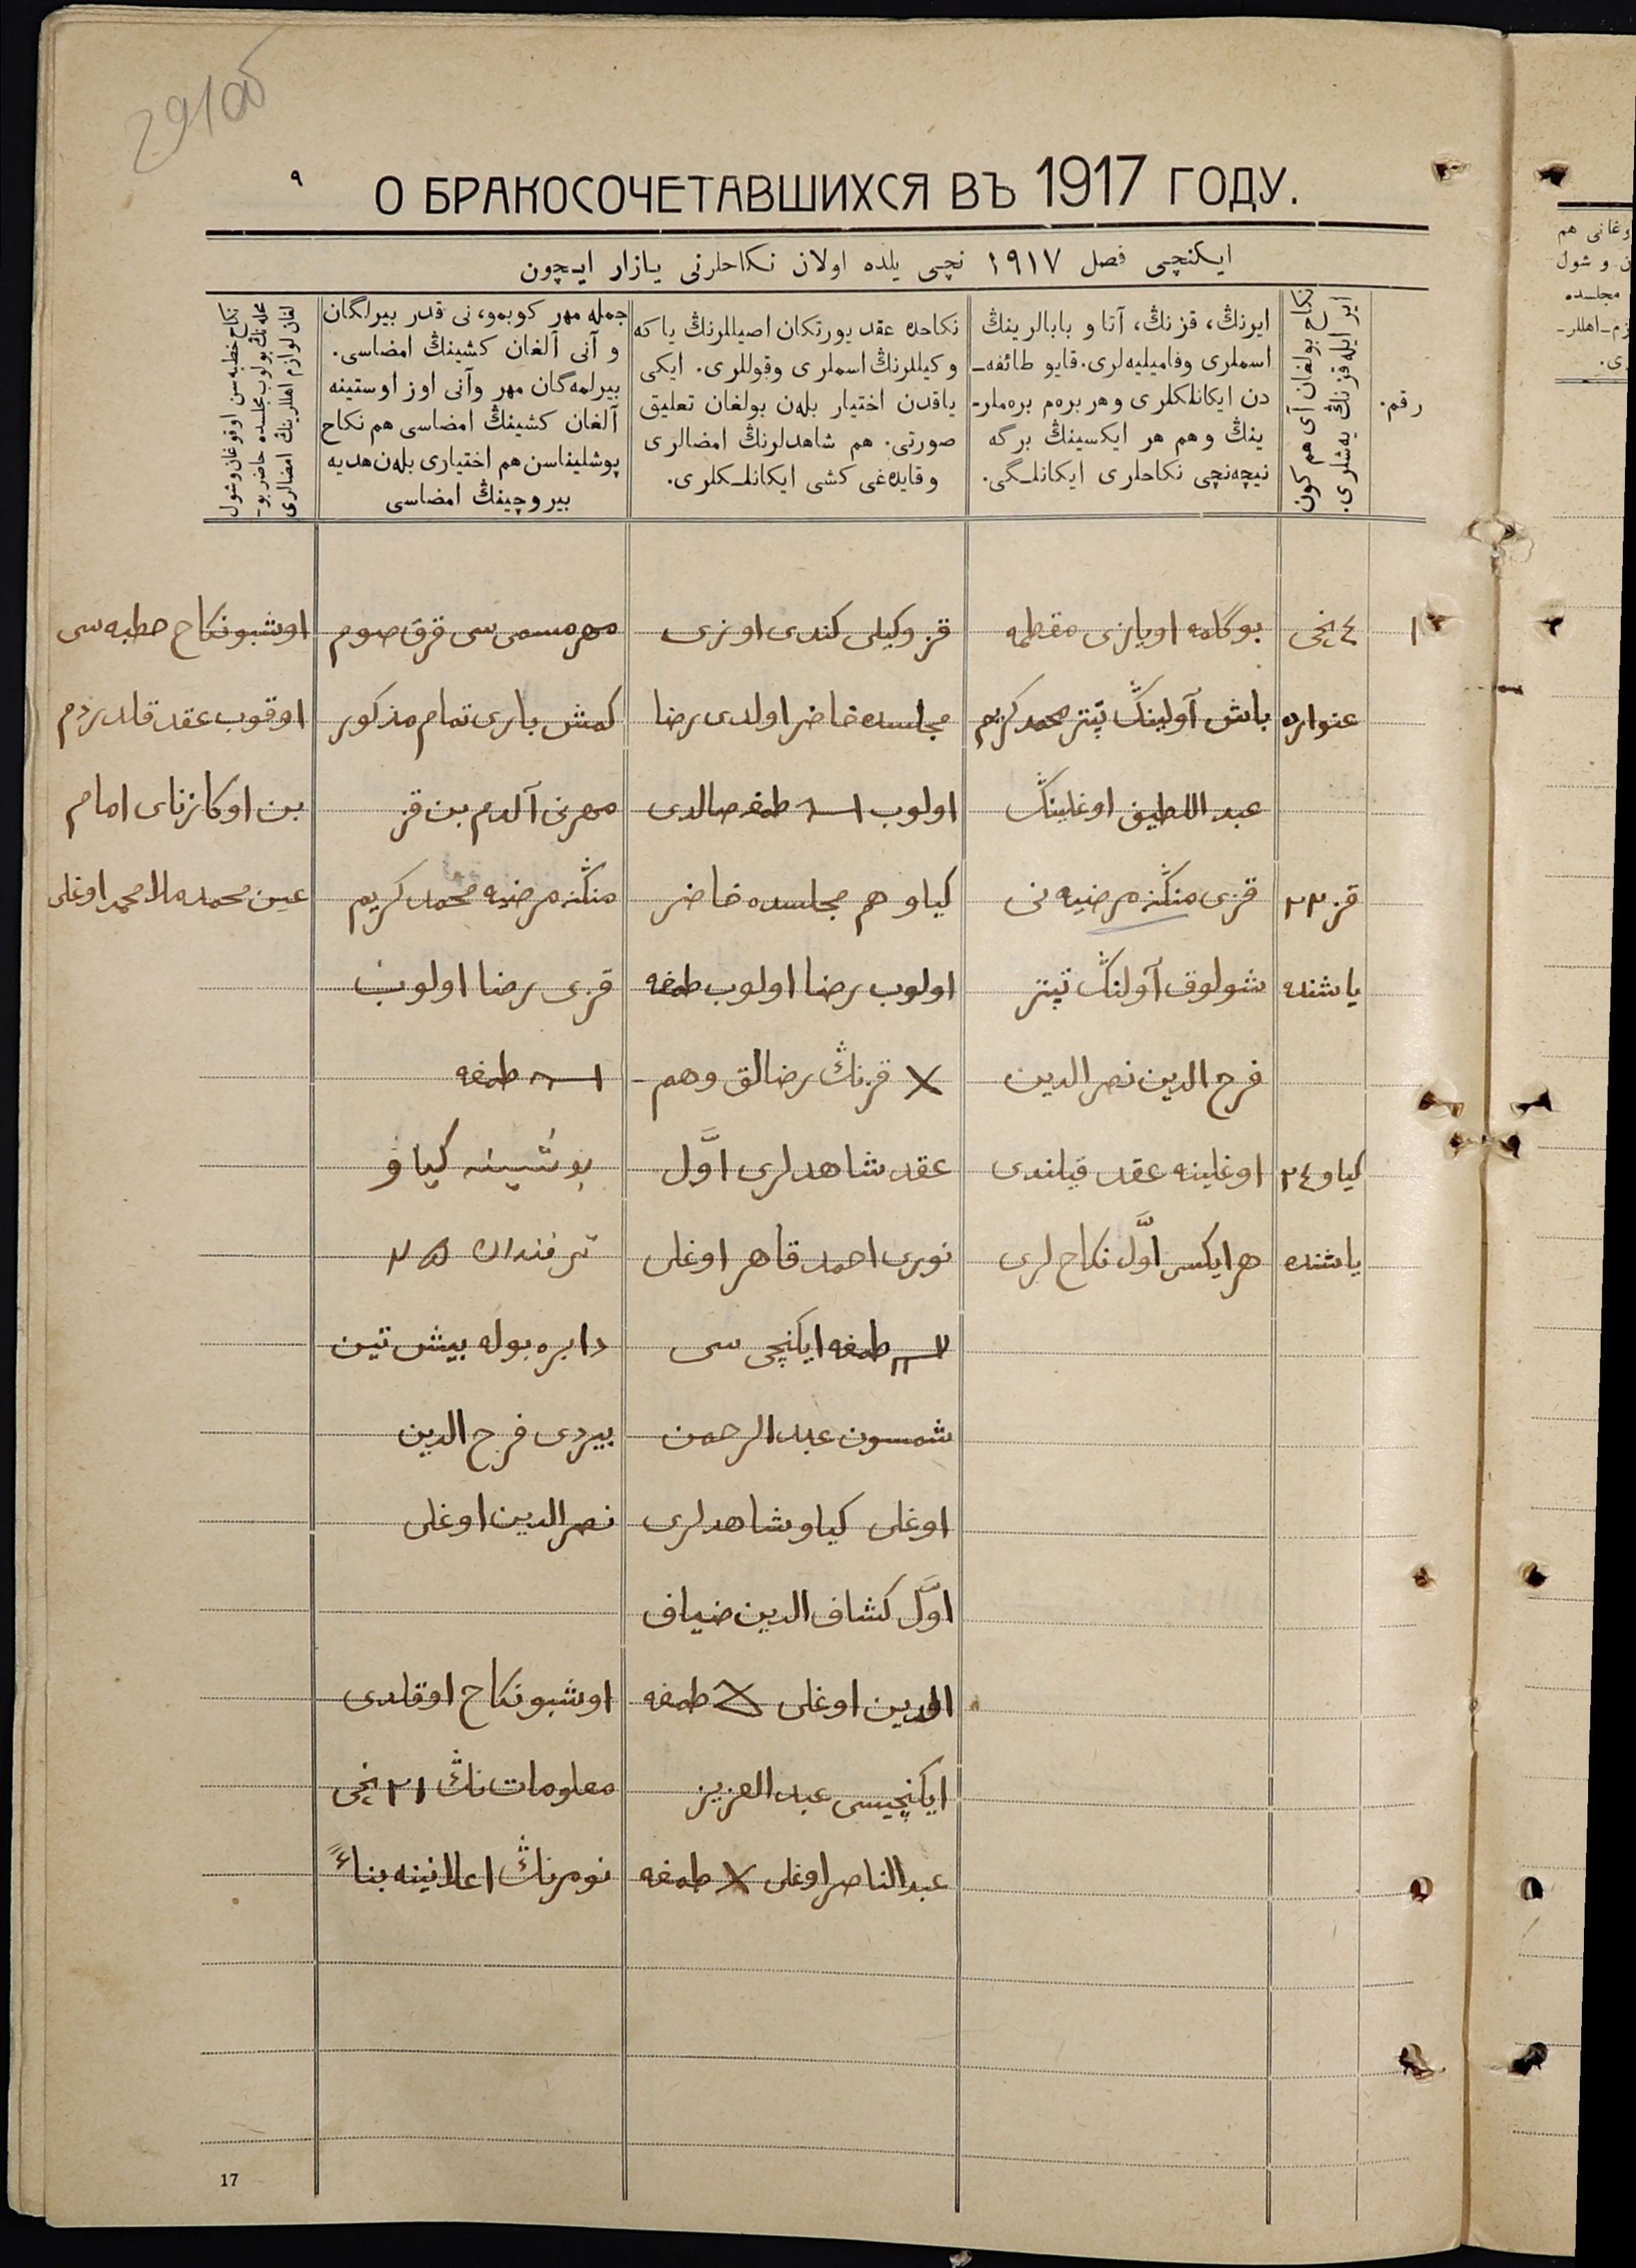 291об
٩
О БРАКОСОЧЕТАВШИХСЯ ВЪ 1917 ГОДУ.
ایكنچی فصل ١٩١٧ نچی یلده اولان نكاحلرنی یازار ایچون
رقم.
نكاح بولغان آی هم كون
ایر ایله قزنڭ یه‌شلری.
ایرنڭ، قزنڭ، آتا و بابالرینڭ
اسملری وفامیلیه‌لری. قایو طائفه‌ـ
دن ایكانلكلری وهر بره‌م بره‌ملرـ
ینڭ وهم هر ایكسینڭ برگه
نیچه‌نچی نكاحلری ایكانلـگی.
نكاحده عقد یورتكان اصیللرنڭ یا كه
وكیللرنڭ اسملری وقوللری. ایكی
یاقدن اختیار بله‌ن بولغان تعلیق
صورتی. هم شاهدلرنڭ امضالری
وقایده‌غی كشی ایكانلـكلری.
جمله مهر كوبمو، نی قدر بیرلگان
و آنی آلغان كشینڭ امضاسی.
بیرلمه‌گان مهر وآنی اوز اوستینه
آلغان كشینڭ امضاسی هم نكاح
پوشلیناسن هم اختیاری بله‌ن هدیه
بیروچینڭ امضاسی
نكاح خطبه‌سن اوقوغان وشول
محله‌نڭ بولوب مجلسده حاضر بوـ
لغان لوازم اهللرینڭ امضالری
١
٤ نچی
عنوارده
قز ٢٣
یاشنده
كیاو ٢٤
یاشنده
بوگلمه اویازی مقطمه
باش آولینڭ تپتر محمدكریم
عبد اللطیف اوغلینڭ
قزی منڭنه مرضیه نی
شولوق آولنڭ تپتر
فرح الدین نصر الدین
اوغلینه عقد قیلندی
هر ایكسی اوّل نكاح لری
قز وكیلی كندی اوزی
مجلسده خاضر اولدی رضا
اولوب طمغه صالدی
كیاو هم مجلسده خاضر
اولوب رضا اولوب طمغه
X قزنڭ رضالق وهم
عقد شاهدلری اوّل
نوری احمد قاهر اوغلی
طمغه ایكنچی سی
شمسون عبد الرحمن
اوغلی كیاو شاهدلری
اوّل كشاف الدین ضیاف
الدین اوغلی طمغه
ایكنچیسی عبد العزیز
عبد الناصر اوغلی X طمغه
مهر مسمی سی قرق صوم
كمش باری تمام مذكور
مهرنی آلدم بن قز
منڭنه مرضیه محمد كریم
قزی رضا اولوب
طمغه
بوشینه كیاو
طرفندان
دابره بوله بیش تین
بیردی فرح الدین
نصر الدین اوغلی
اوشبو نكاح اوقلدی
معلومات نڭ ٢١ نچی
نومرنڭ اعلانینه بناءً
اوشبو نكاح خطبه سی
اوقوب عقد قلدردم
بن اوكازنای امام
عین محمد ملا محمد اوغلی
17